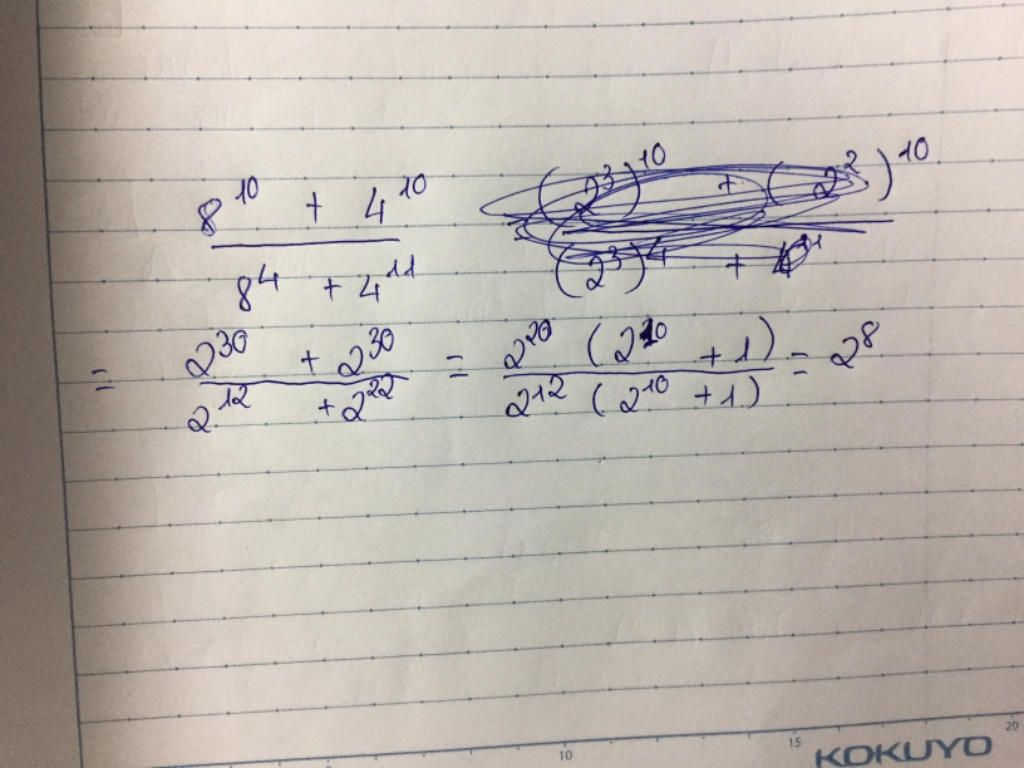 (8^10 + 4^10) / (8^4 + 4^11) ((2^3)^10 + (2^2)^10) / ((2^3)^4 +
= (2^30 + 2^30) / (2^12 + 2^22) = (2^20 (2^10 + 1)) / (2^12 (2^10 + 1)) = 2^8
10 15 20
KOKUYO